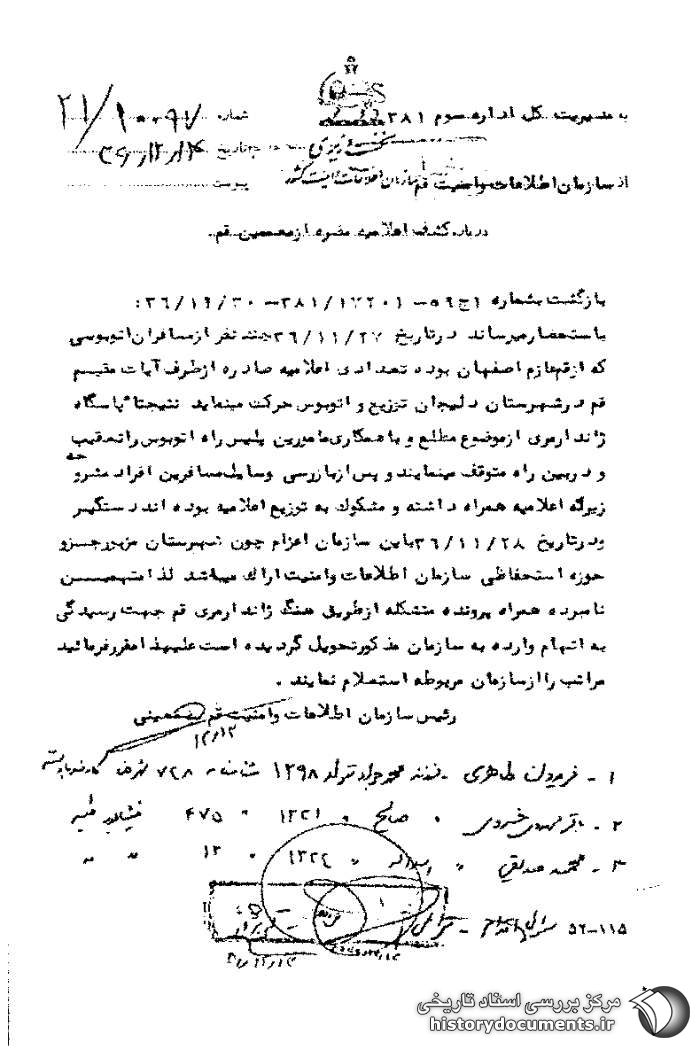 به مدیریت کل اداره سوم ۳۸۱
شماره ۲۱/۱۰۰۹۷
نخست وزیری
تاریخ ۳۶/۱۲/۱۴
از سازمان اطلاعات و امنیت قم
سازمان اطلاعات و امنیت کشور
پیوست
درباره کشف اعلامیه مضره از متهمین قم.
بازگشت بشماره ۳۸۱/۱۷۲۰۱ – :
باستحضار میرساند در تاریخ ۳۶/۱۱/۲۷ چند نفر از مسافران اتوبوسی
که از قم عازم اصفهان بوده تعدادی اعلامیه صادره از طرف آیات مقیم
قم در شهرستان دلیجان توزیع و اتوبوس حرکت مینماید نتیجتا پاسگاه
ژاندارمری از موضوع مطلع و با همکاری مامورین پلیس راه اتوبوس را تعقیب
و در بین راه متوقف مینمایند و پس از بازرسی وسایل مسافرین افراد مشروحه
زیر که اعلامیه همراه داشته و مشکوک به توزیع اعلامیه بوده اند دستگیر
و در تاریخ ۳۶/۱۱/۲۸ باین سازمان اعزام چون شهرستان مزبور جزو
حوزه استحفاظی سازمان اطلاعات و امنیت اراک میباشد لذا متهمین
نامبرده همراه پرونده متشکله از طریق هنگ ژاندارمری قم جهت رسیدگی
به اتهام وارده به سازمان مذکور تحویل گردیده است علیهذا مقرر فرمائید
مراتب را از سازمان مربوطه استعلام نمایند .
رئیس سازمان اطلاعات و امنیت قم معینی
۱۲/۱۳
۱ - فریدون طاهری - فرزند متولد ۱۲۹۸ شناسنامه ۷۲۸
۲ - خسروی " صالح " ۱۳۲۱ " ۴۷۵
۳ - محمد صدیقی " اسداله " ۱۳۲۴ " ۱۳ " "
۵۲-۱۱۵
مرکز بررسی اسناد تاریخی
historydocuments.ir